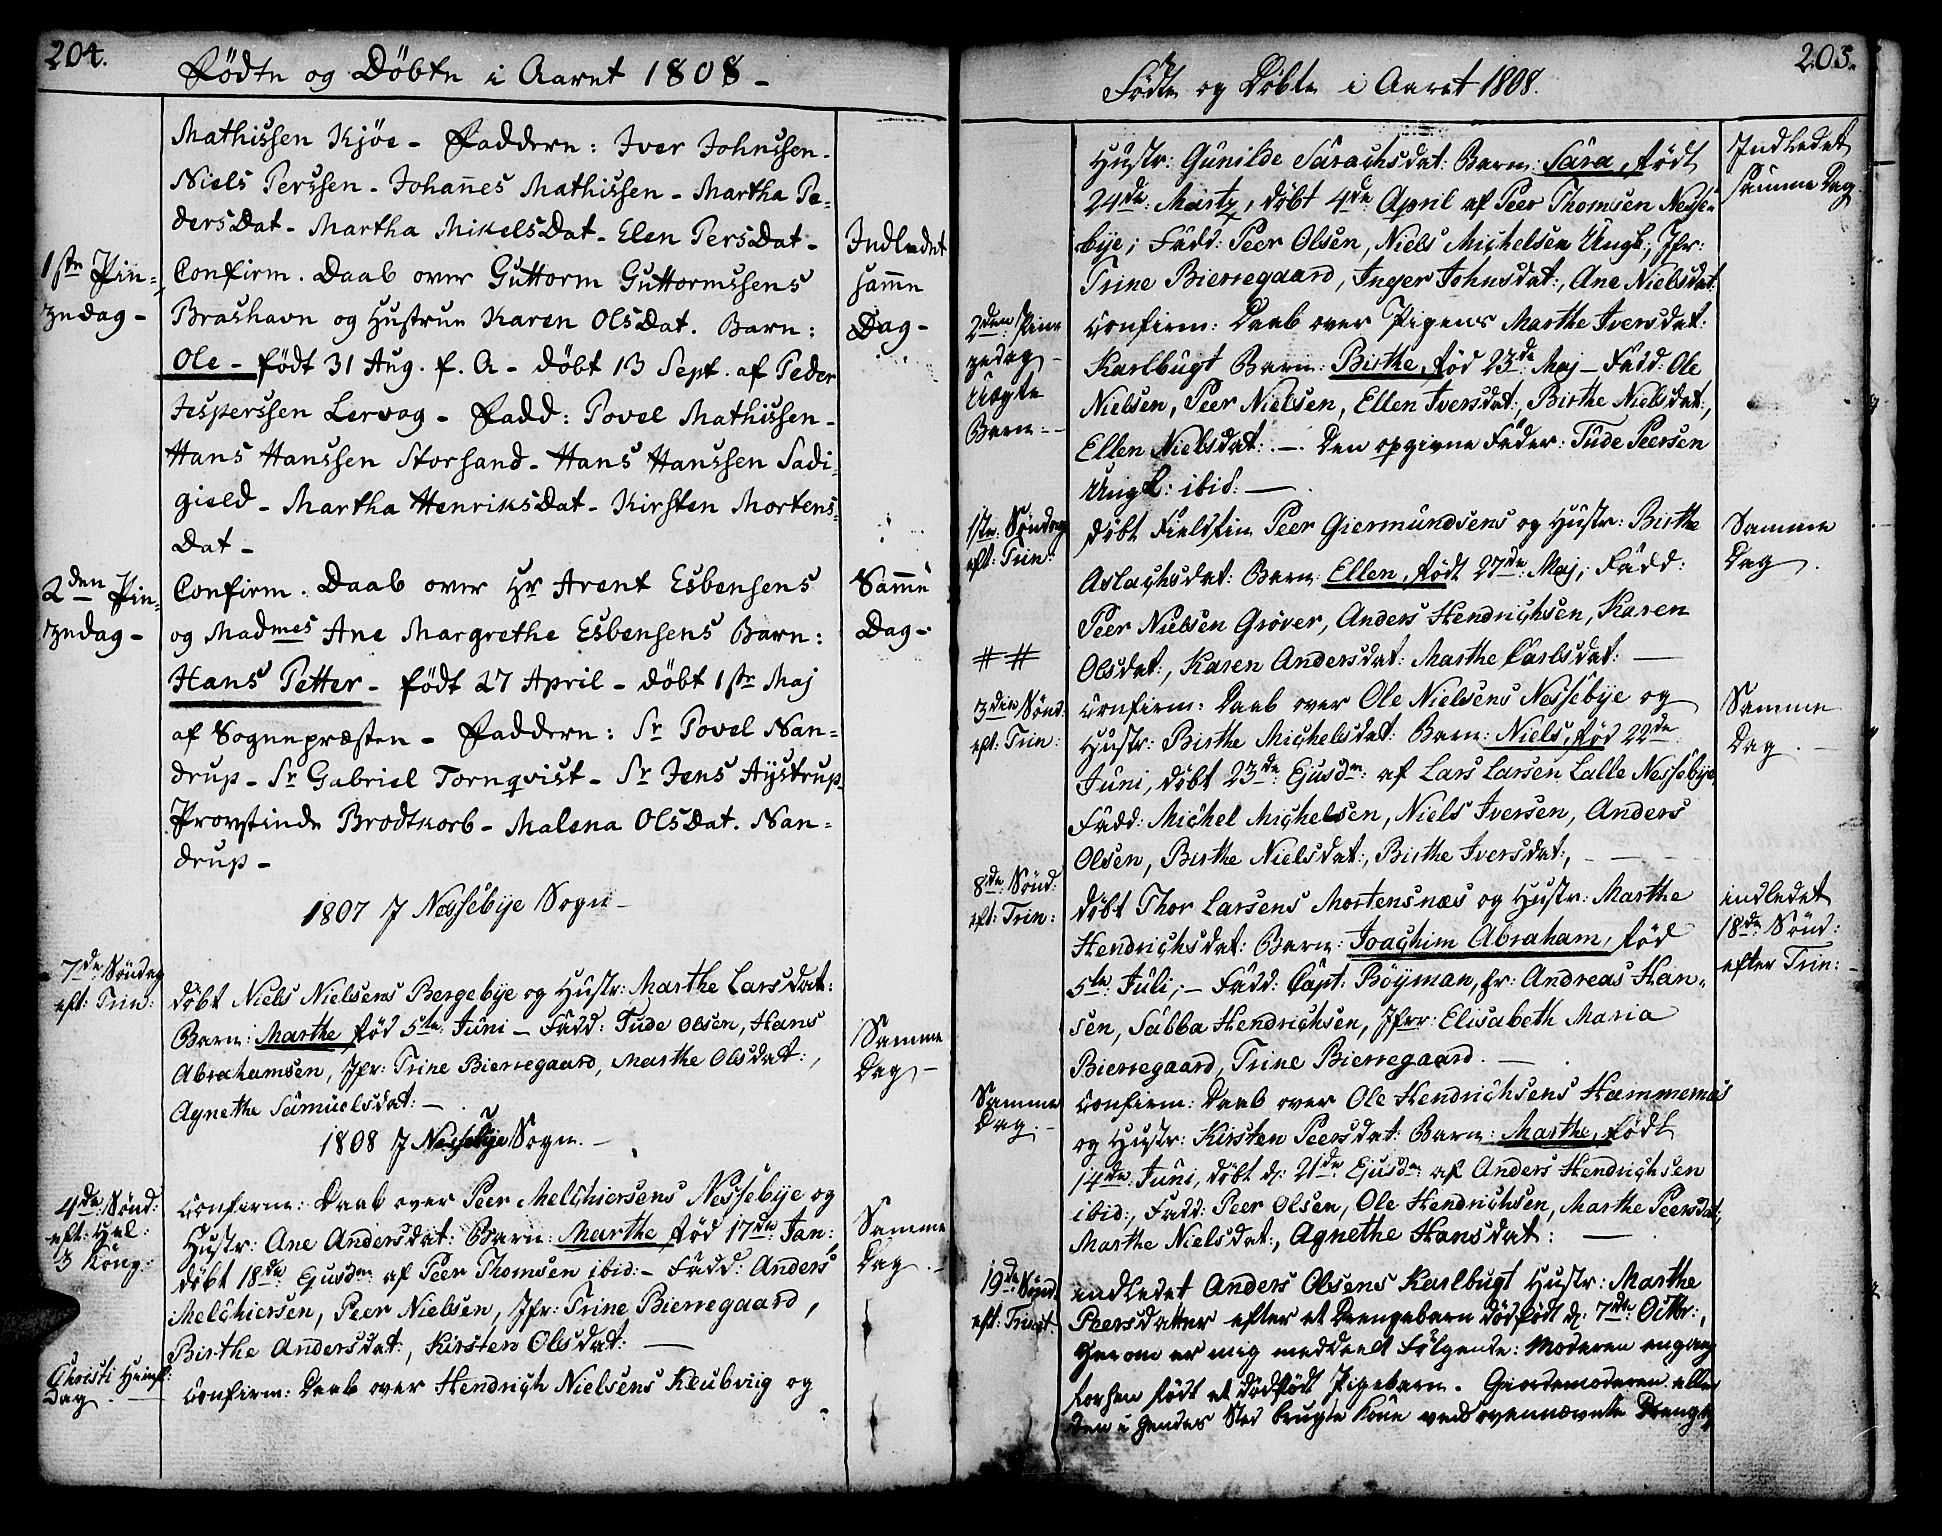 204.
Födte og Döbte i Aaret 1808 -
Mathissen Kjöe - Faddern: Iver Johnssen -
Niels Perssen - Johannes Mathissen - Martha Pe-
dersDat - Martha MikelsDat - Elen PersDat -
1ste Pin-
zedag -
Confirm. Daab over Guttorm Guttormssens
Brashavn og Hustrue Karen OlsDat. Barn:
Ole - født 31 Aug. f. A - döbt 13 Sept. af Peder
Jesperssen Lervog - Fadd: Povel Mathissen -
Hans Hanssen Storsand - Hans Hanssen Sadi-
gield - Martha HenriksDat - Kirsten Mortens-
Dat -
Indledet
samme
Dag -
2den Pin-
zedag -
Confirm. Daab over Hr Arent Esbensens
og Madmes Ane Margrethe Esbensens Barn:
Hans Petter - født 27 April - döbt 1ste Maj
af Sognepræsten - Faddern: Sr Povel Nan-
drup - Sr Gabriel Tornqvist - Sr Jens Aÿstrup
Provstinde Brodtkorb - Malena OlsDat. Nan-
drup -
Samme
Dag -
1807 I Nessebÿe Sogn -
7de Söndag
eft: Trin:
döbt Niels Nielsens Bergebÿe og Hustr: Marthe Larsdat:
Barn: Marthe, fød 5te Juni - Fadd: Tude Olsen, Hans
Abrahamsen, Jfr: Trine Bierregaard, Marthe Olsdat:,
Agnethe Samuelsdat: -
Samme
Dag -
1808 I Nessebÿe Sogn. -
4de Sönd:
eft: Hel:
3 Kong:
Confirm: Daab over Peer Melchiersens Nessebÿe og
Hustr: Ane Andersdat: Barn: Marthe fød 17de Jan:
döbt 18de Ejusdm af Peer Thomsen ibid: - Fadd: Anders
Melchiersen, Peer Nielsen, Jfr: Trine Bierregaard,
Birthe Andersdat:, Kirsten Olsdat: -
Samme
Dag. -
Christi Himf:
Dag. -
Confirm: Daab over Hendrich Nielsens Klubviig og
205.
Födte og Döbte i Aaret 1808.
Hustr: Gunilde Sarachsdat: Barn: Sara, født
24de Martz, döbt 4de April af Peer Thomsen Nesse-
bÿe; Fadd: Peer Olsen, Niels Michelsen Ungk:, Jfr:
Trine Bierregaard, Inger Johnsdat:, Ane Nielsdat:
Indledet
samme Dag
2den Pin-
zedag -
Uægte
Barn -
Confirm: Daab over Pigens Marthe Iversdat:
Karlbugt Barn: Birthe, fød 23de Maj - Fadd: Ole
Nielsen, Peer Nielsen, Ellen Iversdat:, Birthe Nielsdat:,
Ellen Nielsdat: - Den opgivne Fader: Tude Peersen
Ungk: ibid: -
1ste Söndag
eft: Trin:
döbt Fieldfin Peer Giermundsens og Hustr: Birthe
Aslachsdat: Barn: Ellen, født 27de Maj; Fadd:
Peer Nielsen Gröver, Anders Hendrichsen, Karen
Olsdat:, Karen Andersdat: Marthe Carlsdat: -
Samme
Dag.
# #
3die Sönd.
eft: Trin:
Confirm: Daab over Ole Nielsens Nessebÿe og
Hustr: Birthe Michelsdat: Barn: Niels, fød 22de
Juni, döbt 23de Ejusdm: af Lars Larsen Lalle Nessebÿe,
Fadd: Michel Michelsen, Niels Iversen, Anders
Olsen, Birthe Nielsdat:, Birthe Iversdat:, -
Samme
Dag. -
8de Sönd:
eft: Trin:
döbt Thor Larsens Mortensnæs og Hustr: Marthe
Hendrichsdat: Barn: Joachim Abraham, fød
5te Juli; - Fadd: Capt: Böyman, hr: Andreas Han-
sen, Sabba Hendrichsen, Jfrr: Elisabeth Maria
Bierregaard, Trine Bierregaard. -
indledet
18de Sönd:
efter Trin: -
Samme
Dag. -
Confirm: Daab over Ole Hendrichsens Hammernæs
og Hustr: Kirsten Peersdat: Barn: Marthe, født
14de Juni, döbt d: 21de Ejusdm af Anders Hendrichsen
ibid:, Fadd: Peer Olsen, Ole Hendrichsen, Marthe Peersdat:,
Marthe Nielsdat:, Agnethe Hansdat: -
19de Sönd.
eft: Trinit:
indledet Anders Olsens Karlbugt Hustr: Marthe
Peersdatter efter et Drengebarn dödfödt d: 7de Octbr:,
Herom er mig meddeelt Fölgende: Moderen engang
forhen födt et dödfödt Pigebarn. Giordemoderen eller
den i hendes Sted brugte Kone ved ovennævnte Drenge